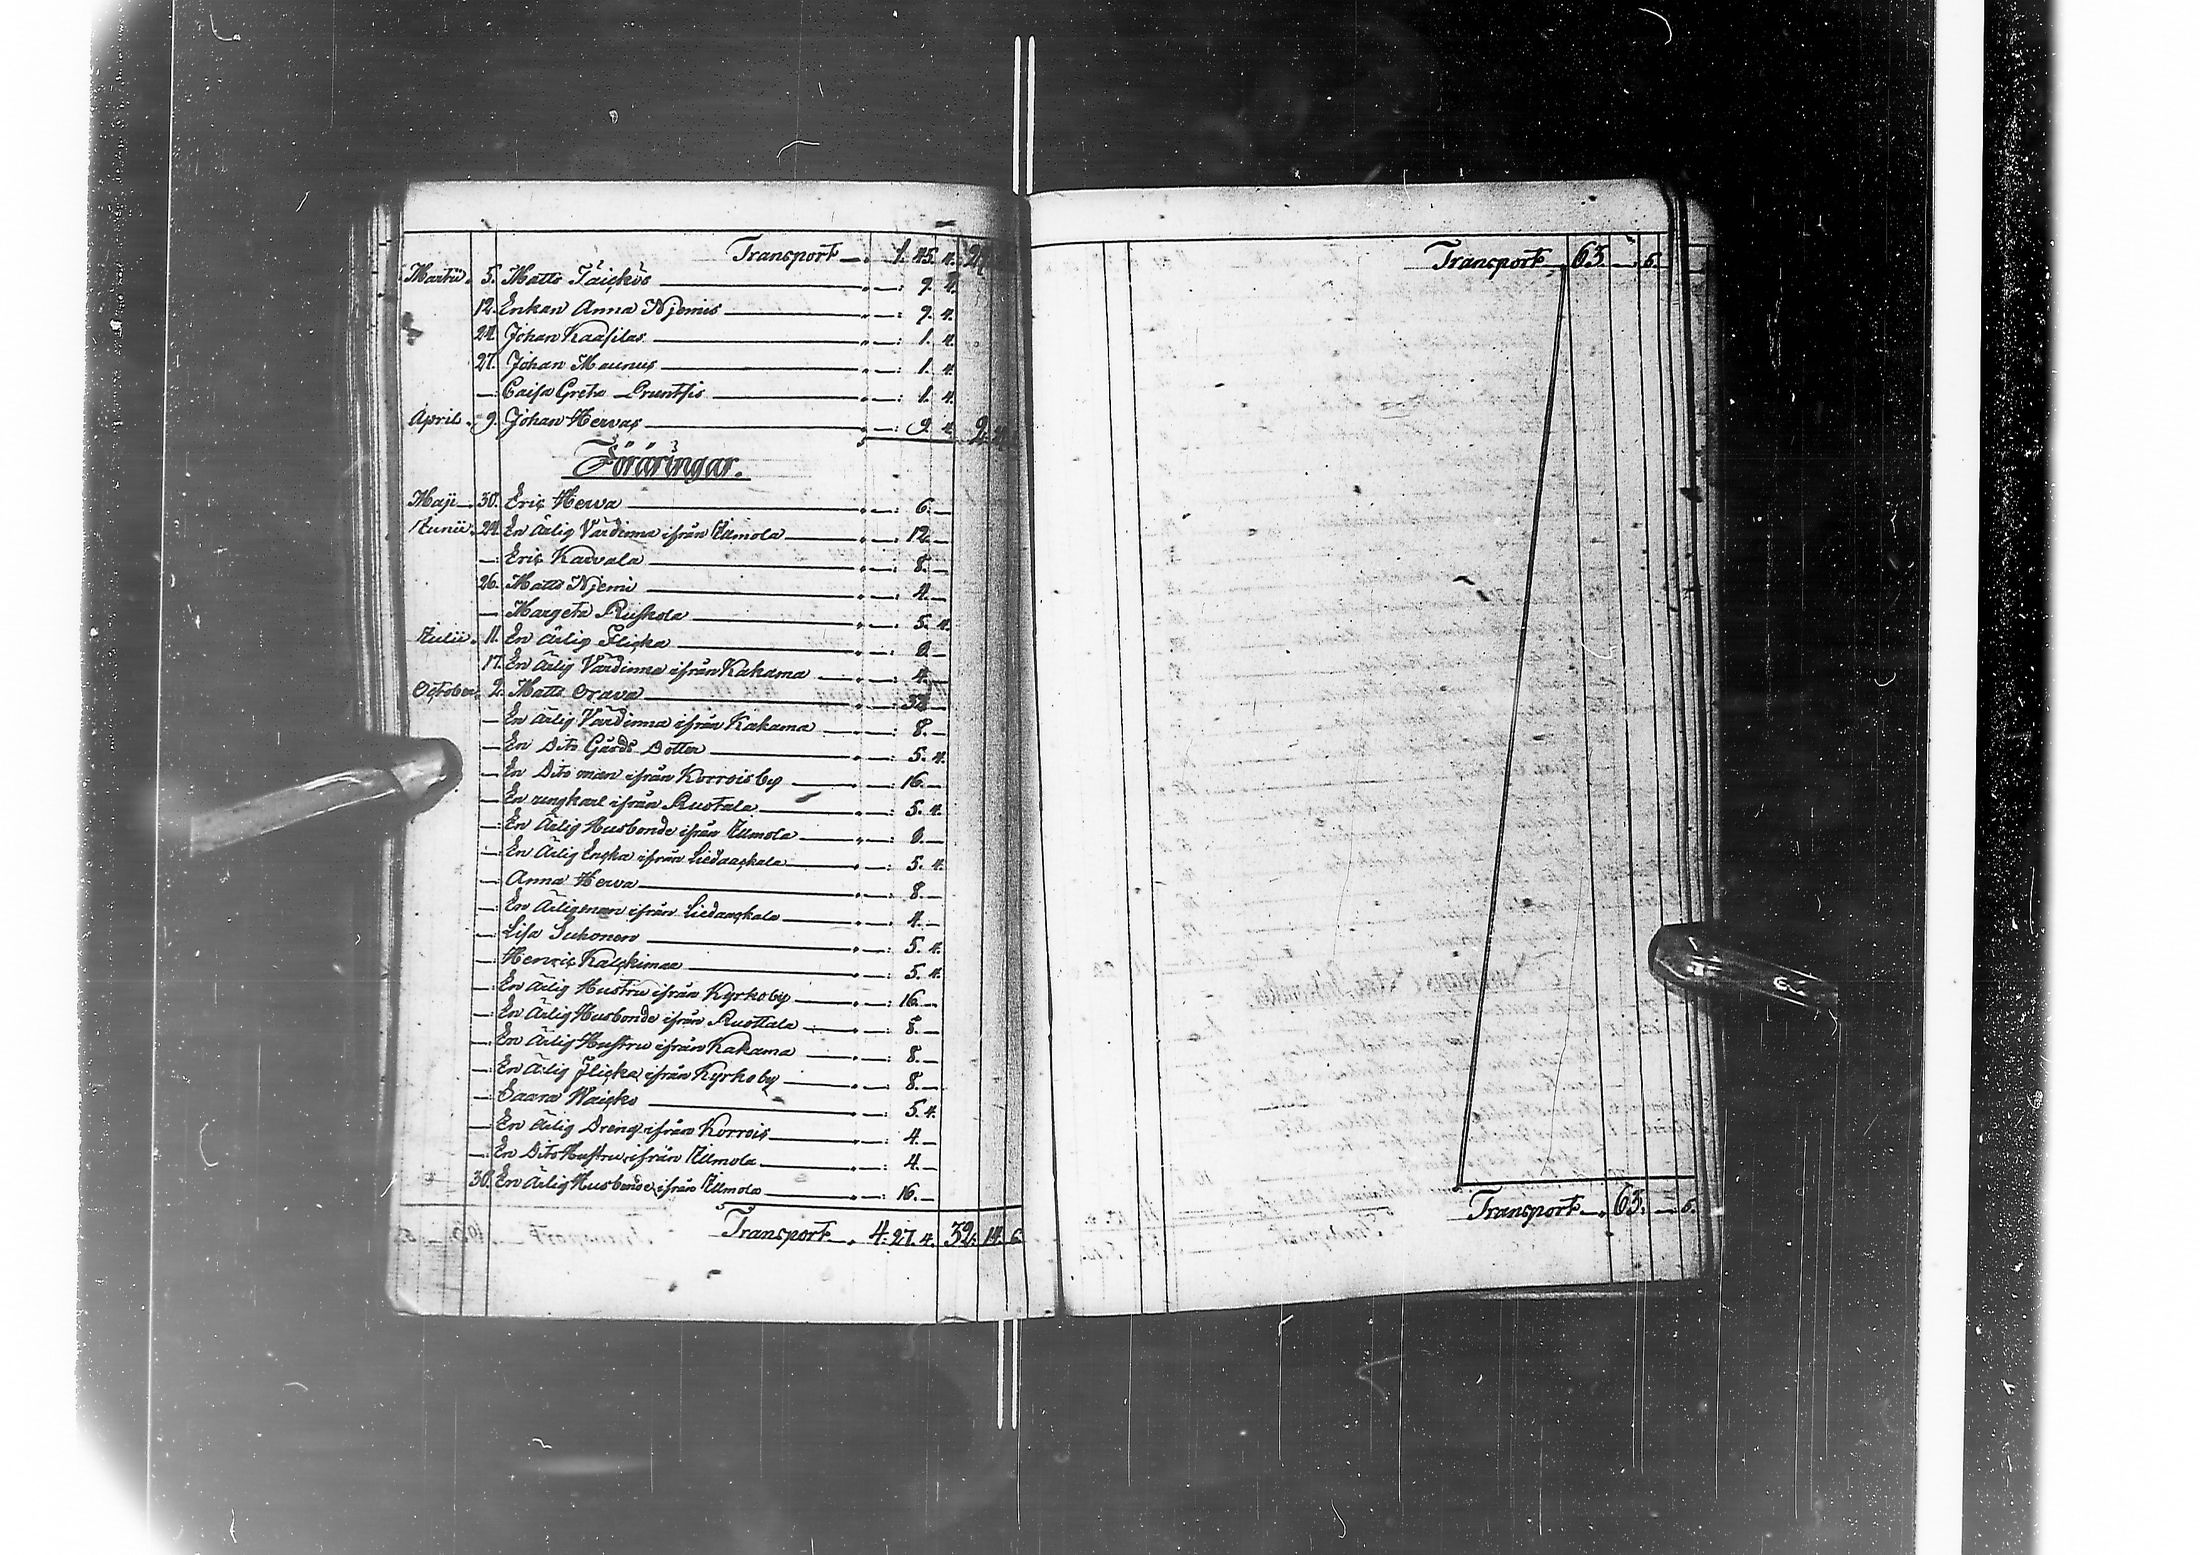 Transport 1. 45. 4.
Martii. 5. Matts Paickos — 9. 4.
12. Enkan Anna Njemis — 9. 4.
24. Johan Kaasilas — 1. 4.
27. Johan Maunus — 1. 4.
— Caisa Greta — 1. 4.
April. 9. Johan Hervas — 9. 4.
Föräringar.
Maji 30. Eric Herva — 6. —
Junii. 24. En ärlig Värdinna ifrån Ulmola — 12. —
— Eric Karvala — 8. —
26. Matts Njemi — 4. —
— Margeta Ruskola — 5. 4.
Julii. 11. En ärlig Flicka — 8. —
17. En ärlig Värdinna ifrån Kakama — 4. —
October. 2. Matts Orava — 32. —
— En ärlig Värdinna ifrån Kakama — 8. —
— En Dito Gårds Dotter — 5. 4.
— En Dito man ifrån Korrois by — 16. —
— En ungkarl ifrån Rustala — 5. 4.
— En Ärlig Husbonde ifrån Ulmola — 8. —
— En Ärlig Encka ifrån Liedaackala — 5. 4.
— Anna Herva — 8. —
— En Ärlig man ifrån Liedaackala — 4. —
— Lisa Suhonen — 5. 4.
— Henric Kalckimaa — 5. 4.
— En ärlig Hustru ifrån Kyrkoby — 16. —
— En ärlig Husbonde ifrån Rusttala — 8. —
— En ärlig Hustru ifrån Kakama — 8. —
— En ärlig Flicka ifrån Kyrkoby — 8. —
— Saara Waicko — 5. 4.
— En ärlig Dreng ifrån Korrois — 4. —
— En Dito Hustru ifrån Ulmola — 4. —
30. En ärlig Husbonde ifrån Ulmola — 16. —
Transport 4. 27. 4. 32. 14. 6.
Transport 63. — 5.
Transport 63. — 5.